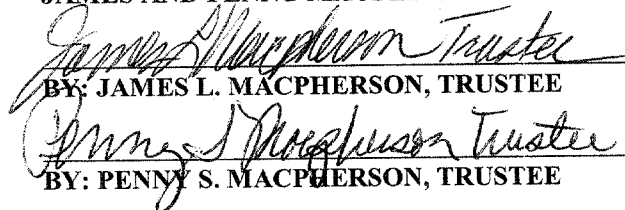 JAMES AND PENNY
James L Macpherson Trustee
BY: JAMES L. MACPHERSON, TRUSTEE
Penny S Macpherson Trustee
BY: PENNY S. MACPHERSON, TRUSTEE